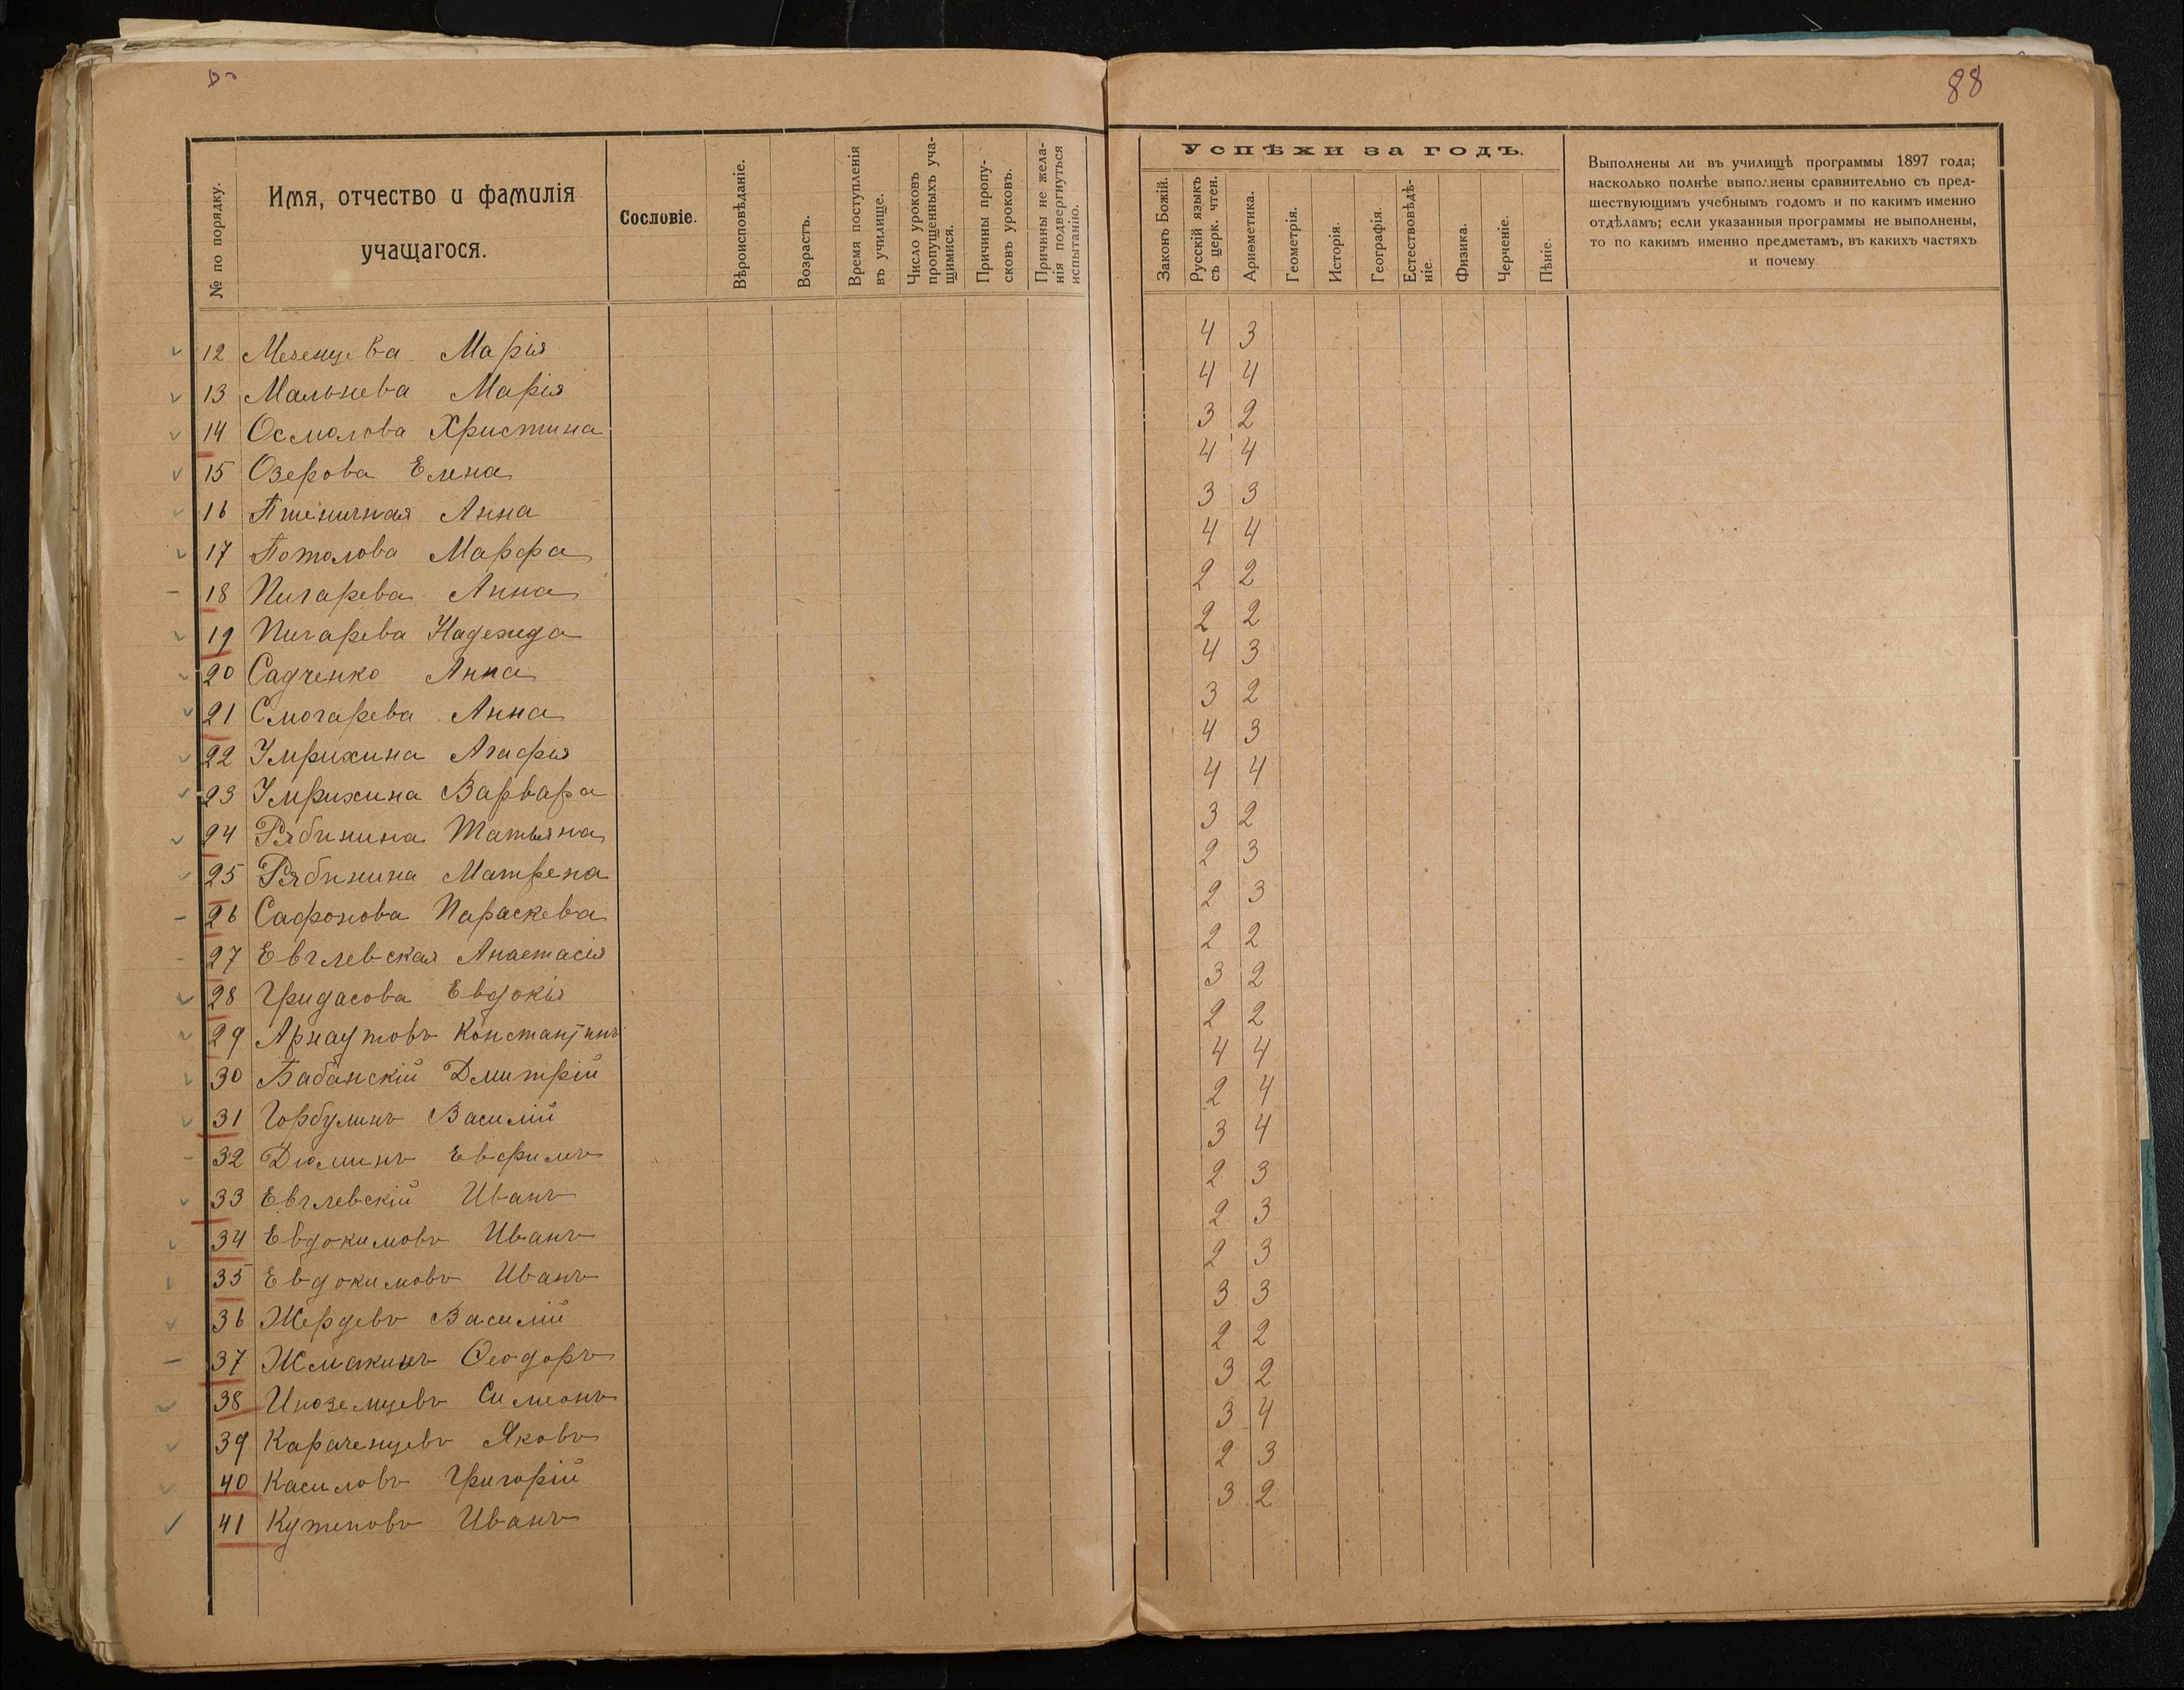 88
№ по порядку.
Имя, отчество и фамилія
учащагося.
Сословіе.
Вѣроисповѣданіе.
Возрастъ.
Время поступленія
въ училище.
Число уроковъ
пропущенныхъ уча-
щимися.
Причины пропу-
сковъ уроковъ.
Причины не жела-
нія подвергнуться
испытанію.
Успѣхи за годъ.
Законъ Божій.
Русскій языкъ
съ церк. чтен.
Ариѳметика.
Геометрія.
Исторія.
Географія.
Естествовѣдѣ-
ніе.
Физика.
Черченіе.
Пѣніе.
Выполнены ли въ училищѣ программы 1897 года;
насколько полнѣе выполнены сравнительно съ пред-
шествующимъ учебнымъ годомъ и по какимъ именно
отдѣламъ; если указанныя программы не выполнены,
то по какимъ именно предметамъ, въ какихъ частяхъ
и почему
12 Мезенцева Марія 4 3
13 Мальнева Марія 4 4
14 Осмолова Христина 3 2
15 Озерова Елена 4 4
16 Пшеничная Анна 3 3
17 Потолова Марфа 4 4
18 Пигарева Анна 2 2
19 Пигарева Надежда 2 2
20 Садченко Анна 4 3
21 Смогарева Анна 3 2
22 Умрихина Агафія 4 3
23 Умрихина Варвара 4 4
24 Рябинина Татьяна 3 2
25 Рябинина Матрена 2 3
26 Сафонова Параскева 2 3
27 Евглевская Анастасія 2 2
28 Гридасова Евдокія 3 2
29 Арнаутовъ Константинъ 2 2
30 Бабанскій Дмитрій 4 4
31 Горбулинъ Василій 2 4
32 Дюминъ Евфимъ 3 4
33 Евглевскій Иванъ 2 3
34 Евдокимовъ Иванъ 2 3
35 Евдокимовъ Иванъ 2 3
36 Жердевъ Василій 3 3
37 Жмакинъ Ѳеодоръ 2 2
38 Иноземцевъ Симеонъ 3 2
39 Караченцевъ Яковъ 3 4
40 Касиловъ Григорій 2 3
41 Кутеповъ Иванъ 3 2